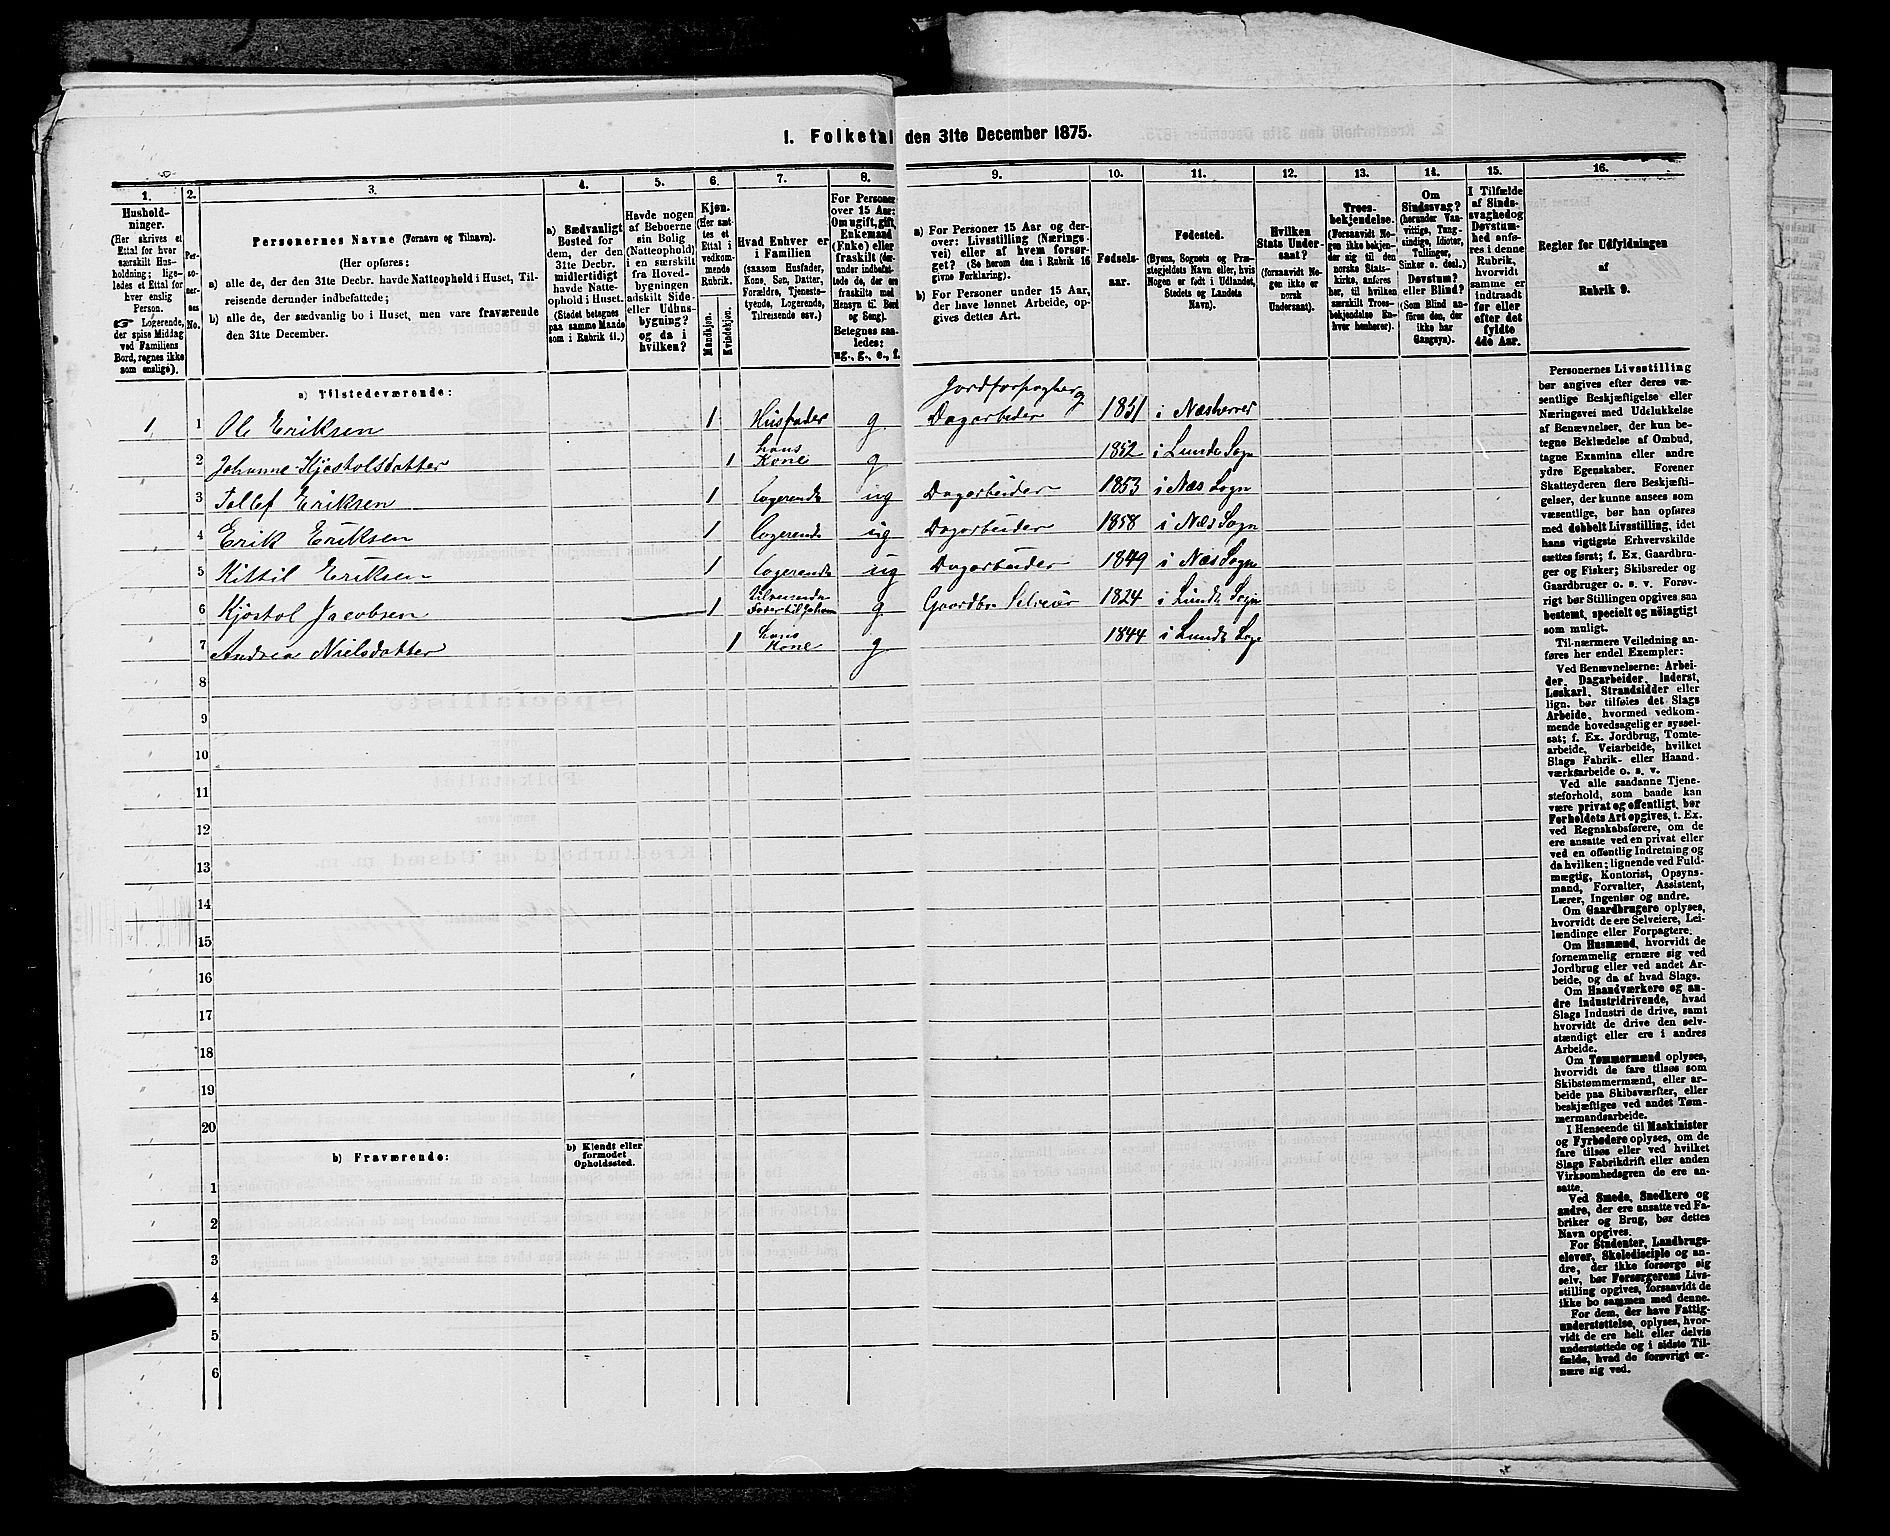 1. Folketal den 31te December 1875.
1. 2. 3. 4. 5. 6. 7. 8. 9. 10. 11. 12. 13. 14. 15. 16.
Hushold-
ninger.
(Her skrives et
Ettal for hver
særskilt Hus-
holdning; lige-
ledes et Ettal for
hver enslig
Person.
☞ Logerende,
der spise Middag
ved Familiens
Bord, regnes ikke
som enslige).
Per-
so-
ner-
nes
No.
Personernes Navne (Fornavn og Tilnavn).
(Her opføres:
a) alle de, der den 31te Decbr. havde Natteophold i Huset, Til-
reisende derunder indbefattede;
b) alle de, der sædvanlig bo i Huset, men vare fraværende
den 31te December.
a) Sædvanligt
Bosted for
dem, der den
31te Decbr.
midlertidigt
havde Natte-
ophold i Huset.
(Stedet betegnes
paa samme Maade
som i Rubrik 11.)
Havde nogen
af Beboerne
sin Bolig
(Natteophold)
i en særskilt
fra Hoved-
bygningen
adskilt Side-
eller Udhus-
bygning?
og da i
hvilken?
Kjøn.
(Her sæt-
tes et
Ettal i
vedkom-
mende
Rubrik.
Mandkjøn.
Kvindekjøn.
Hvad Enhver er
i Familien
(saasom Husfader,
Kone, Søn, Datter,
Forældre, Tjeneste-
tyende, Logerende,
Tilreisende osv.)
For Personer
over 15 Aar:
Om ugift, gift,
Enkemand
(Enke) eller
fraskilt (der-
under indbefat-
tede de, der ere
fraskilte med
Hensyn til Bord
og Seng).
Betegnes saa-
ledes:
ug., g., e., f.
a) For Personer 15 Aar og der-
over: Livsstilling (Nærings-
vei) eller af hvem forsør-
get? (Se herom den i Rubrik 16
givne Forklaring).
b) For Personer under 15 Aar,
der have lønnet Arbeide, op-
gives dettes Art.
Fødsels-
aar.
Fødested.
(Byens, Sognets og Præ-
stegjeldets Navn eller, hvis
Nogen er født i Udlandet,
Stedets og Landets
Navn).
Hvilken
Stats Under-
saat?
(forsaavidt No-
gen ikke er
norsk
Undersaat).
Troes-
bekjendelse.
(Forsaavidt No-
gen ikke bekjen-
der sig til den
norske Stats-
kirke, anføres
her, til hvilken
særskilt Troes-
bekjendelse En-
hver henhører).
Om
Sindssvag?
(herunder Van-
vittige, Tung-
sindige, Idioter,
Tullinger,
Sinker o. desl.)
Døvstum?
eller Blind?
(Som Blind an-
føres den, der
ikke har
Gangsyn).
I Tilfælde
af Sinds-
svaghed og
Døvstum-
hed anfø-
res i denne
Rubrik,
hvorvidt
samme er
indtraadt
før eller
efter det
fyldte
4de Aar.
Regler for Udfyldningen
af
Rubrik 9.
a) Tilstedeværende:
Jordforpagter og
1 1 Ole Eriksen 1 Husfader g Dagarbeider 1851 i Næsherred
2 Johanne Kjostolsdatter 1 hans Kone g 1852 i Lunde Sogn
3 Tollef Eriksen 1 Logerende ug Dagarbeider 1853 i Næs Sogn
4 Erik Eriksen 1 Logerende ug Dagarbeider 1858 i Næs Sogn
5 Kittil Eriksen 1 Logerende ug Dagarbeider 1849 i Næs Sogn
6 Kjostol Jacobsen 1 g Gaardbr Selveier 1824 i Lunde Sogn
7 Andrea Nielsdatter 1 hans Kone g 1844 i Lunde Sogn
8
9
10
11
12
13
14
15
16
17
18
19
20
b) Fraværende:
b) Kjendt eller
formodet
Opholdssted.
1
2
3
4
5
6
Personernes Livsstilling
bør angives efter deres væ-
sentlige Beskjæftigelse eller
Næringsvei med Udelukkelse
af Benævnelser, der kun be-
tegne Beklædelse af Ombud,
tagne Examina eller andre
ydre Egenskaber. Forener
Skatteyderen flere Beskjæfti-
gelser, der kunne ansees som
væsentlige, bør han opføres
med dobbelt Livsstilling, idet
hans vigtigste Erhvervskilde
sættes først; f. Ex. Gaardbru-
ger og Fisker; Skibsreder og
Gaardbruger o. s. v. Forøv-
rigt bør Stillingen opgives saa
bestemt, specielt og nøiagtigt
som muligt.
Til nærmere Veiledning an-
føres her endel Exempler:
Ved Benævnelserne: Arbei-
der, Dagarbeider, Inderst,
Løskarl, Strandsidder eller
lign. bør tilføies det Slags
Arbeide, hvormed vedkom-
mende hovedsagelig er syssel-
sat; f. Ex. Jordbrug, Tomte-
arbeide, Veiarbeide, hvilket
Slags Fabrik- eller Haand-
værksarbeide o. s. v.
Ved alle saadanne Tjene-
steforhold, som baade kan
være privat og offentligt, bør
Forholdets Art opgives, f. Ex.
ved Regnskabsførere, om de
ere ansatte ved en privat eller
ved en offentlig Indretning og
da hvilken; lignende ved Fuld-
mægtig, Kontorist, Opsyns-
mand, Forvalter, Assistent,
Lærer, Ingeniør og andre.
Om Gaardbrugere oplyses,
hvorvidt de ere Selveiere, Lei-
lændinge eller Forpagtere.
Om Husmænd, hvorvidt de
fornemmelig ernære sig ved
Jordbrug eller ved andet Ar-
beide, og da af hvad Slags.
Om Haandværkere og an-
dre Industridrivende, hvad
Slags Industri de drive, samt
hvorvidt de drive den selv-
stændigt eller ere i andres
Arbeide.
Om Tømmermænd oplyses,
hvorvidt de fare tilsøs som
Skibstømmermænd, eller ar-
beide paa Skibsværfter, eller
beskjæftiges ved andet Tøm-
mermandsarbeide.
I Henseende til Maskinister
og Fyrbødere oplyses, om de
fare tilsøs eller ved hvilket
Slags Fabrikdrift eller anden
Virksomhedsgren de ere an-
satte.
Ved Smede, Snedkere og
andre, der ere ansatte ved Fa-
briker og Brug, bør dettes
Navn opgives.
For Studenter, Landbrugs-
elever, Skoledisciple og an-
dre, der ikke forsørge sig
selv, bør Forsørgerens Livs-
stilling opgives, forsaavidt de
ikke bo sammen med denne.
For dem, der have Fattig-
understøttelse, oplyses, hvor-
vidt de ere helt eller delvis
understøttede og i sidste Til-
fælde, hvad de forøvrigt er-
nære sig ved.